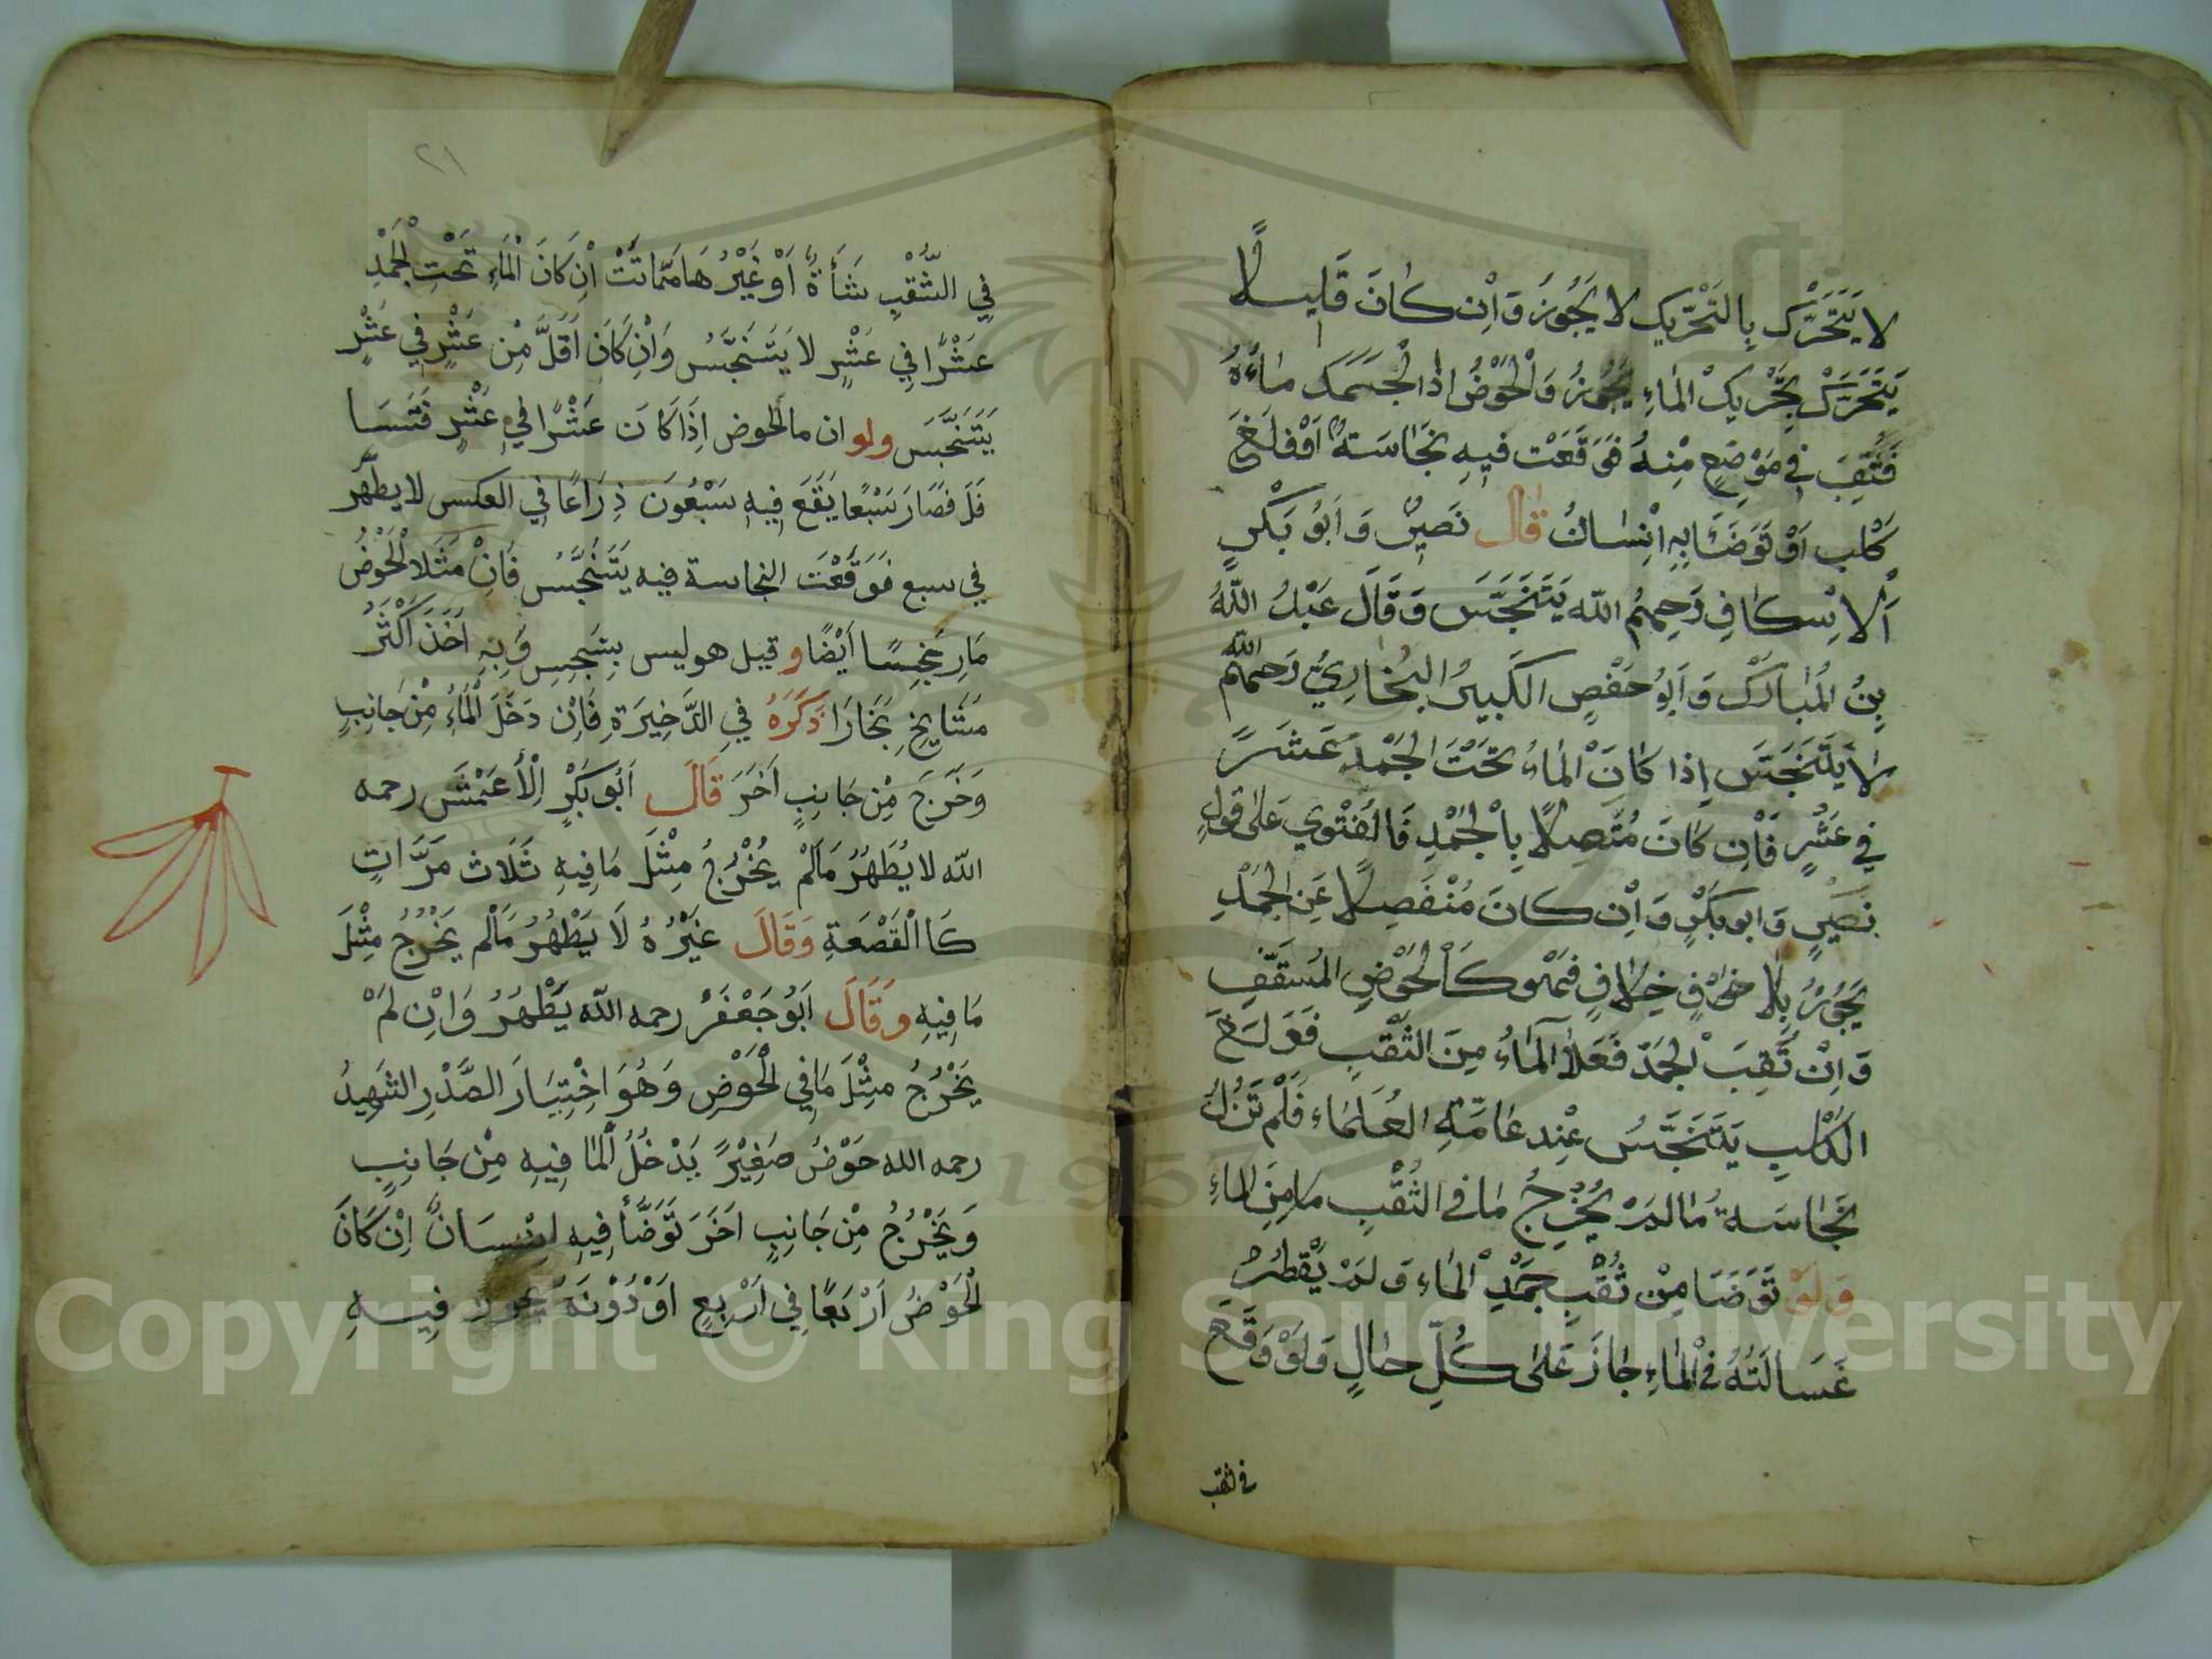 لا يَتَحَرَّك بِالتَحْرِيكِ لا يَجُوزُ وَاِنْ كانَ قَلِيلًا
يَتَحَرَّكُ بِتَحْرِيكِ الماءِ يَجُوزُ وَالْحَوْضُ اِذا انْجَمَدَ ماءُهُ
فَثُقِبَ في مَوْضِعٍ مِنْهُ فَوَقَعَتْ فيهِ نَجَاسَةٌ اَوْ وَلَغَ
كَلْب اَوْ تَوَضَّأ بِهِ اِنْسانٌ قال نَصِيرٌ وَ اَبُو بَكْرٍ
اَلاِسْكافِ رَحِمَهُم اللّه يَتَنَجَّسَ وَقَالَ عَبْدُ اللّهِ
بِنُ المُبارَكْ وَ اَبُو حَفْصٍ الكَبِيرُ البُخَارِيُّ رَحِمَهُم الله
لا يَتَنَجَّسَ اِذا كانَ الماءُ تَحْتَ الجَمْدِ عَشَرً
في عَشْرٍ فَاِنْ كانَ مُتَّصِلًا بِالْجَمْدِ فَالفَتْوي عَلىٰ قولِ
نَصَيرٍ وَ ابو بَكْرٍ وَ اِنْ كانَ مُنْفَصِلًا عَنِ الجَمْدِ
يَجُوزُ بِلا خِلافٍ فَهْوَ كَالْحَوْضِ المُسَقَّفِ
وَ اِنْ ثُقِبَ الجَمَدَ فَعَلَا الماءُ مِنَ الثُّقْبِ فَوَلَغَ
الكَلْبُ يَتَنَجَّسُ عِنْدَ عَامَّةِ العُلَمَاءِ فَلَمْ تَزُلْ
نَجَاسَةُ مَا لَمْ يَخْرُجُ مَا في الثُّقْبِ مَا مِنَ الماءِ
وَلَوْ تَوَضَّا مِنْ ثُقْبِ جَمْدِ الْماءِ وَ لَمْ يَقْطُرُ
غَسَالَتُهُ في الماءِ جَازَ عَلىٰ كُلِّ حالٍ وَلَوْ وَقَعَ
في الثقب
٢١
فِي الثُّقْبِ شَأةٌ اَوْ غَيْرُهَا مَمَّاتَتْ اِنْ كَانَ الْمَاءِ تَحْتَ الْجَمْدِ
عَشْرًا فِي عَشْرٍ لا يَتَنَجَّسُ وَاِنْ كَانَ اَقَلَّ مِنْ عَشْرٍ فِي عَشْرٍ
يَتَنَجَّسَ ولو ان ما الحوض اِذَا كَانَ عَشْرًا فِي عَشْرٍ فَتَسَا
فَلَ فصَارَ سَبْعًا يَقَعَ فِيهِ سَبْعُونَ ذِرَاعًا فِي العكس لا يطهّر
في سبع فَوَقَعْتَ النجاسة فيه يَتَنَجَّسُ فَاِنْ مَثَلَا الْحَوْضُ
مَارِ نَجِسًا اَيْضًا و قيل هو ليس بِنَجِسٍ وَ بِهِ اَخَذَ اَكْثَرُ
مَشَايخِ بُخَارَا ذَكَرَهُ فِي الذَّخِيرَةِ فَاِنْ دَخَلَ الْمَاءُ مِنْ جَانِبٍ
وَخَرَجَ مِنْ جَانِبٍ اَخَرَ قَالَ اَبُو بَكْرٍ اِلْاَعْمَشَ رحمه
الله لا يُطَهُرُ مَالَمْ يُخْرُجُ مِثْلَ مَافِيهِ ثَلَاث مَرَّاتٍ
كَا الْقَصْعَةِ وَقَالَ غَيْرُهُ لَا يَطْهُرُ مَالَم يَخْرُجُ مِثْلَ
مَافِيهِ وَقَالَ اَبُو جَعْفَرَ رحمه الله يَطْهُرُ وَاِنْ لَمْ
يَخْرُجُ مِثْلَ مَا فِي الْحَوْضِ وَهُوَ اخْتِيَارَ الصَّدْرِ الشهِيدُ
رحمه الله حَوْضُ صَغِيْرً يَدْخُلُ الْمَا فِيهِ مِنْ جَانِبٍ
وَيَخْرُجُ مِنْ جَانِبٍ اَخَرَ تَوَضَّأَ فِيهِ اِنْسَانٌ اِنْ كَانَ
الْحَوْضُ اَرْبَعًا فِي اَرْبِعٍ اَوْ دُوْنَهُ يَجُوز فِيهِ
Copyright © King Saud University
1957